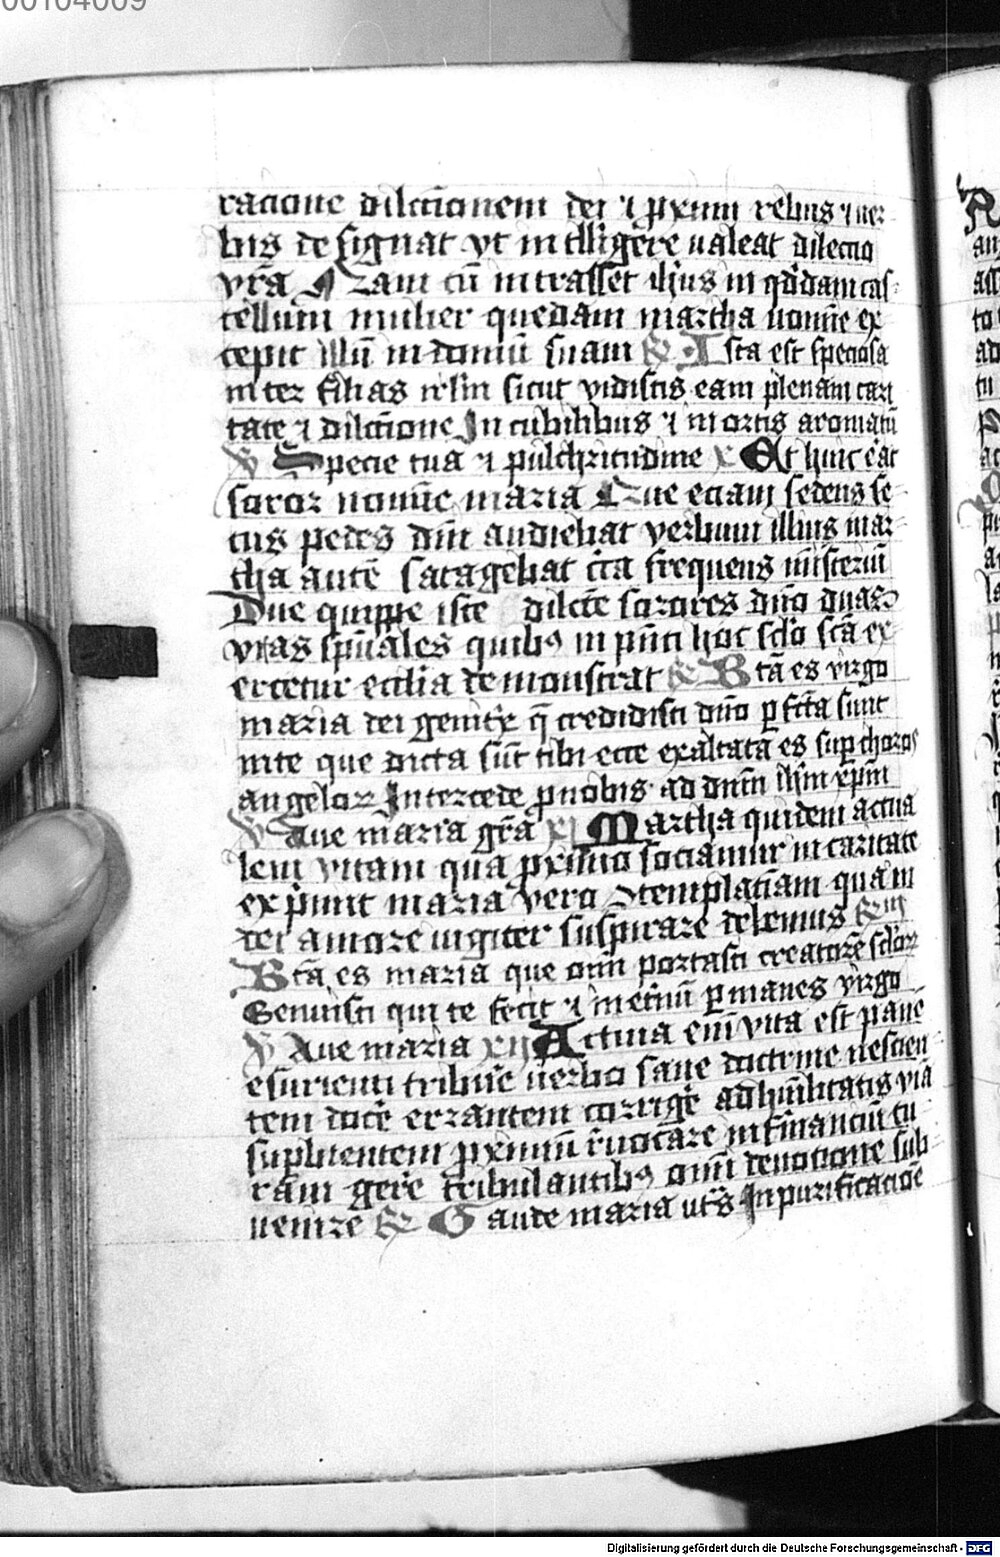 00104009
racione dilcc̄ionem dei ⁊ p̱ximi rebus ⁊ uer
bis de signat vt in tllig̾ere ualeat dilectio
vr̄a Nam cū intrasset ih̄us in qd̾dam cas-
tellum mulier quedam martha nomīe ex
cepit illū in domū suam R̷ Ista est speciosa
in ter filias irl̄m sicut vidistis eam plenam cari
tate ⁊ dilcc̄ione In cubilibus ⁊ in ortis aromatū
V̷ Specie tua ⁊ pulchritudine x Et huic e̾at
soror nomīe maria Que eciam sedens se-
cus pedes dn̄i audiebat verbum illius mar-
tha autē satagebat cͥca frequens mīsteriū
Due quippe iste dilcte sorores dn̄o duas
vitas spūales quibꝫ in pn̄ti hoc sc̄lo sc̄a ex-
ercetur ecclīa demonstrat R̷ Btā es virgo
maria dei genitͥx q̄ credidisti dn̄o ꝑfc̄ta sunt
inte que dicta sūt tibi ecce exaltata es suꝑ choros
angeloꝝ Intercede ꝓnobis ad dn̄m ih̄m xp̄m
V̷ Aue maria gr̄a xi Martha quidem actua
lem vitam qua ꝓximo sociamur in caritate
exp̾imit maria vero ꝯtemplac̄iam quam in
dei amore iugiter suspirare debemus R̷ iij
Btā es maria que om̄i portasti creatorē sc̄loꝝ
Genuisti qui te fecit ⁊ inet̾nū ꝑmanes virgo
V̷ Aue maria xij Actiua eni vita est pane
esurienti tribu̾e uerbo sane doctrine nescien-
tem docē errantem corrig̾e ad hūilitatis viā
suꝑbientem ꝓximū r̾uocare infirmanciū cu-
ram ger̾e tribulantibꝫ om̄i deuotione sub-
uenire R̷ Gaude maria ut s̾ In purificacioē
Digitalisierung gefördert durch die Deutsche Forschungsgemeinschaft - DFG